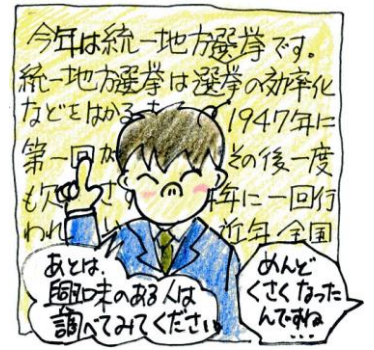 今年は統一地方選挙です。
統一地方選挙は選挙の効率化
などをはかる
1947年に
第一回
その後一度
も欠
年に一回行
われ
近年、全国
あとは、
興味のある人は
調べてみてください。
めんど
くさくなった
んですね
・・・